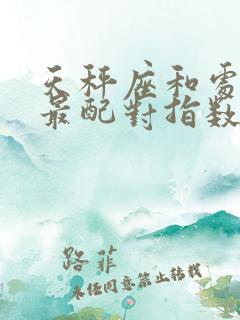 天秤座和處
最配對指数
路菲
未经同意禁止转载